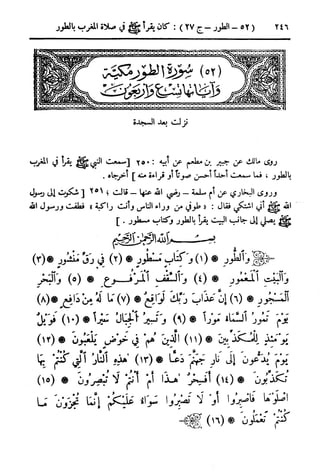 ٢٤٦ (٥٢ – الطور – ج ٢٧) : كان يقرأ ﷺ في صلاة المغرب بالطور
(٥٢) سورة الطور مكية
وآياتها تسع وأربعون
نزلت بعد السجدة
روى مالك عن جبير بن مطعم عن أبيه : ٢٥٠ [ سمعت النبي ﷺ يقرأ في المغرب
بالطور ، فما سمعت أحداً أحسن صوتاً أو قراءة منه ] أخرجاه .
وروى البخاري عن أم سلمة – رضي الله عنها – قالت : ٢٥١ [ شكوت إلى رسول
الله ﷺ أني أشتكي فقال : « طوفي من وراء الناس وأنت راكبة » فطفت ورسول الله
ﷺ يصلي إلى جانب البيت يقرأ بالطور وكتاب مسطور . ]
بسم الله الرحمن الرحيم
وَالطُّورِ * (١) وَكِتَابٍ مَسْطُورٍ * (٢) فِي رَقٍّ مَنْشُورٍ * (٣)
وَالْبَيْتِ الْمَعْمُورِ * (٤) وَالسَّقْفِ الْمَرْفُوعِ * (٥) وَالْبَحْرِ
الْمَسْجُورِ * (٦) إِنَّ عَذَابَ رَبِّكَ لَوَاقِعٌ * (٧) مَا لَهُ مِنْ دَافِعٍ * (٨)
يَوْمَ تَمُورُ السَّمَاءُ مَوْراً * (٩) وَتَسِيرُ الْجِبَالُ سَيْراً * (١٠) فَوَيْلٌ
يَوْمَئِذٍ لِلْمُكَذِّبِينَ * (١١) الَّذِينَ هُمْ فِي خَوْضٍ يَلْعَبُونَ * (١٢)
يَوْمَ يُدَعُّونَ إِلَى نَارِ جَهَنَّمَ دَعّاً * (١٣) هَذِهِ النَّارُ الَّتِي كُنْتُمْ بِهَا
تُكَذِّبُونَ * (١٤) أَفَسِحْرٌ هَذَا أَمْ أَنْتُمْ لَا تُبْصِرُونَ * (١٥)
اصْلَوْهَا فَاصْبِرُوا أَوْ لَا تَصْبِرُوا سَوَاءٌ عَلَيْكُمْ إِنَّمَا تُجْزَوْنَ مَا
كُنْتُمْ تَعْمَلُونَ * (١٦)